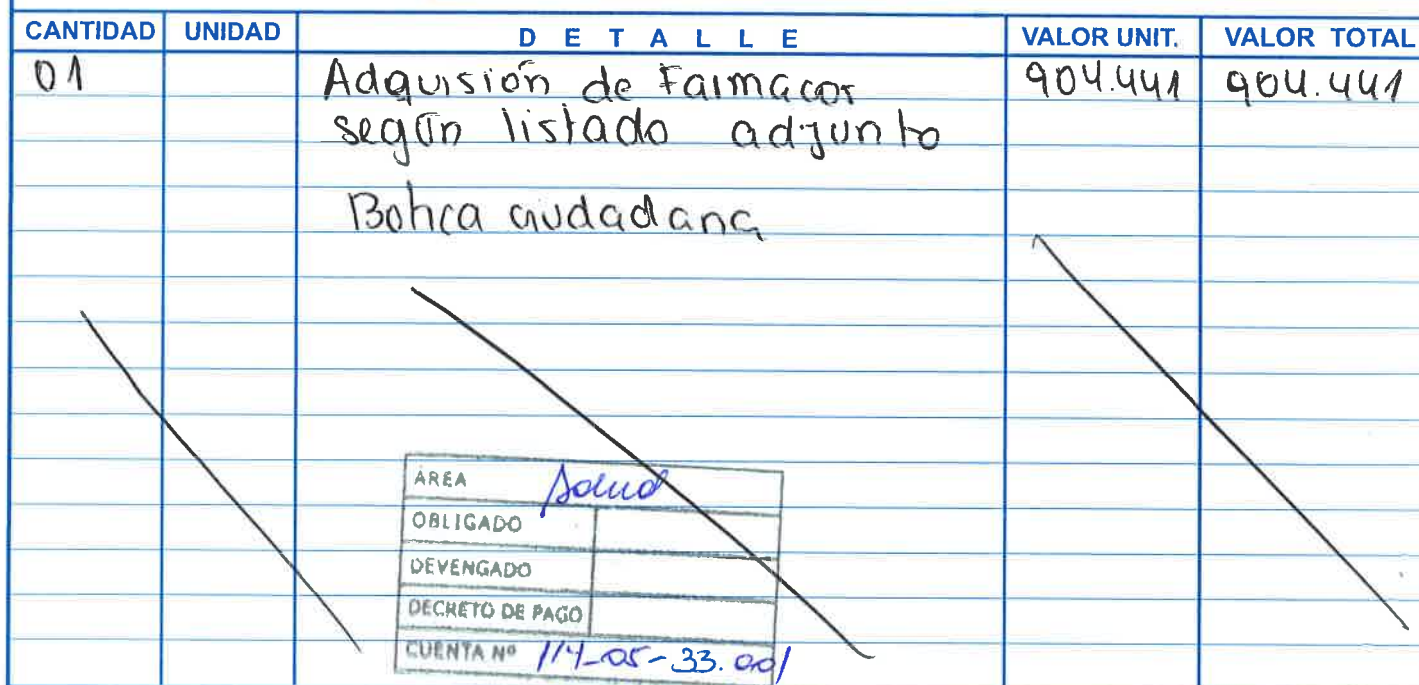 CANTIDAD UNIDAD DETALLE VALOR UNIT. VALOR TOTAL
01 Adquisión de Farmacos 904.441 904.441
según listado adjunto
Botica ciudadana
ÁREA Salud
OBLIGADO
DEVENGADO
DECRETO DE PAGO
CUENTA Nº 114-05-33.001